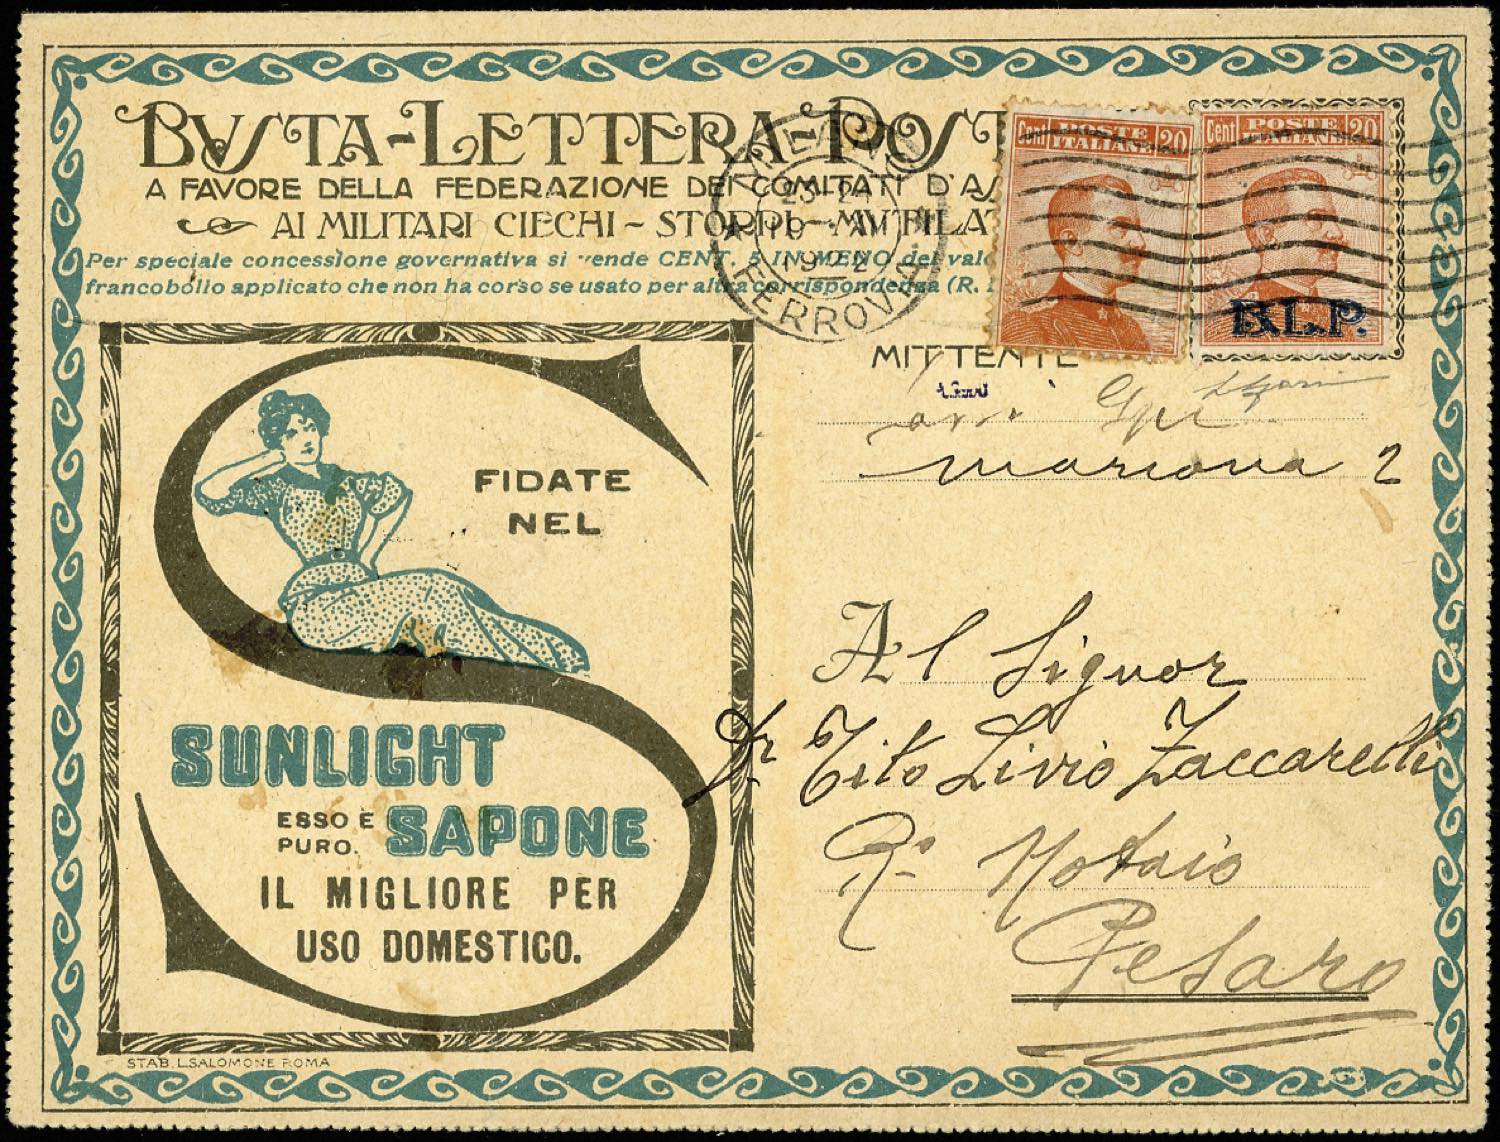 BUSTA-LETTERA POST
A FAVORE DELLA FEDERAZIONE DEI COMITATI D'AS
AI MILITARI CIECHI - STORPI - MUTILAT
Per speciale concessione governativa si vende CENT. 5 IN MENO del valo
francobollo applicato che non ha corso se usato per altra corrispondenza (R.
MILANO
23-24
19 XI
1922
FERROVIA
Cent POSTE ITALIANE 20
Cent POSTE ITALIANE 20
B.L.P.
MITTENTE
2
FIDATE
NEL
SUNLIGHT
ESSO È
PURO.
SAPONE
IL MIGLIORE PER
USO DOMESTICO.
STAB. L. SALOMONE ROMA
Al Signor
Dr Tito Livio Zaccarelli
Ro Notaio
Pesaro